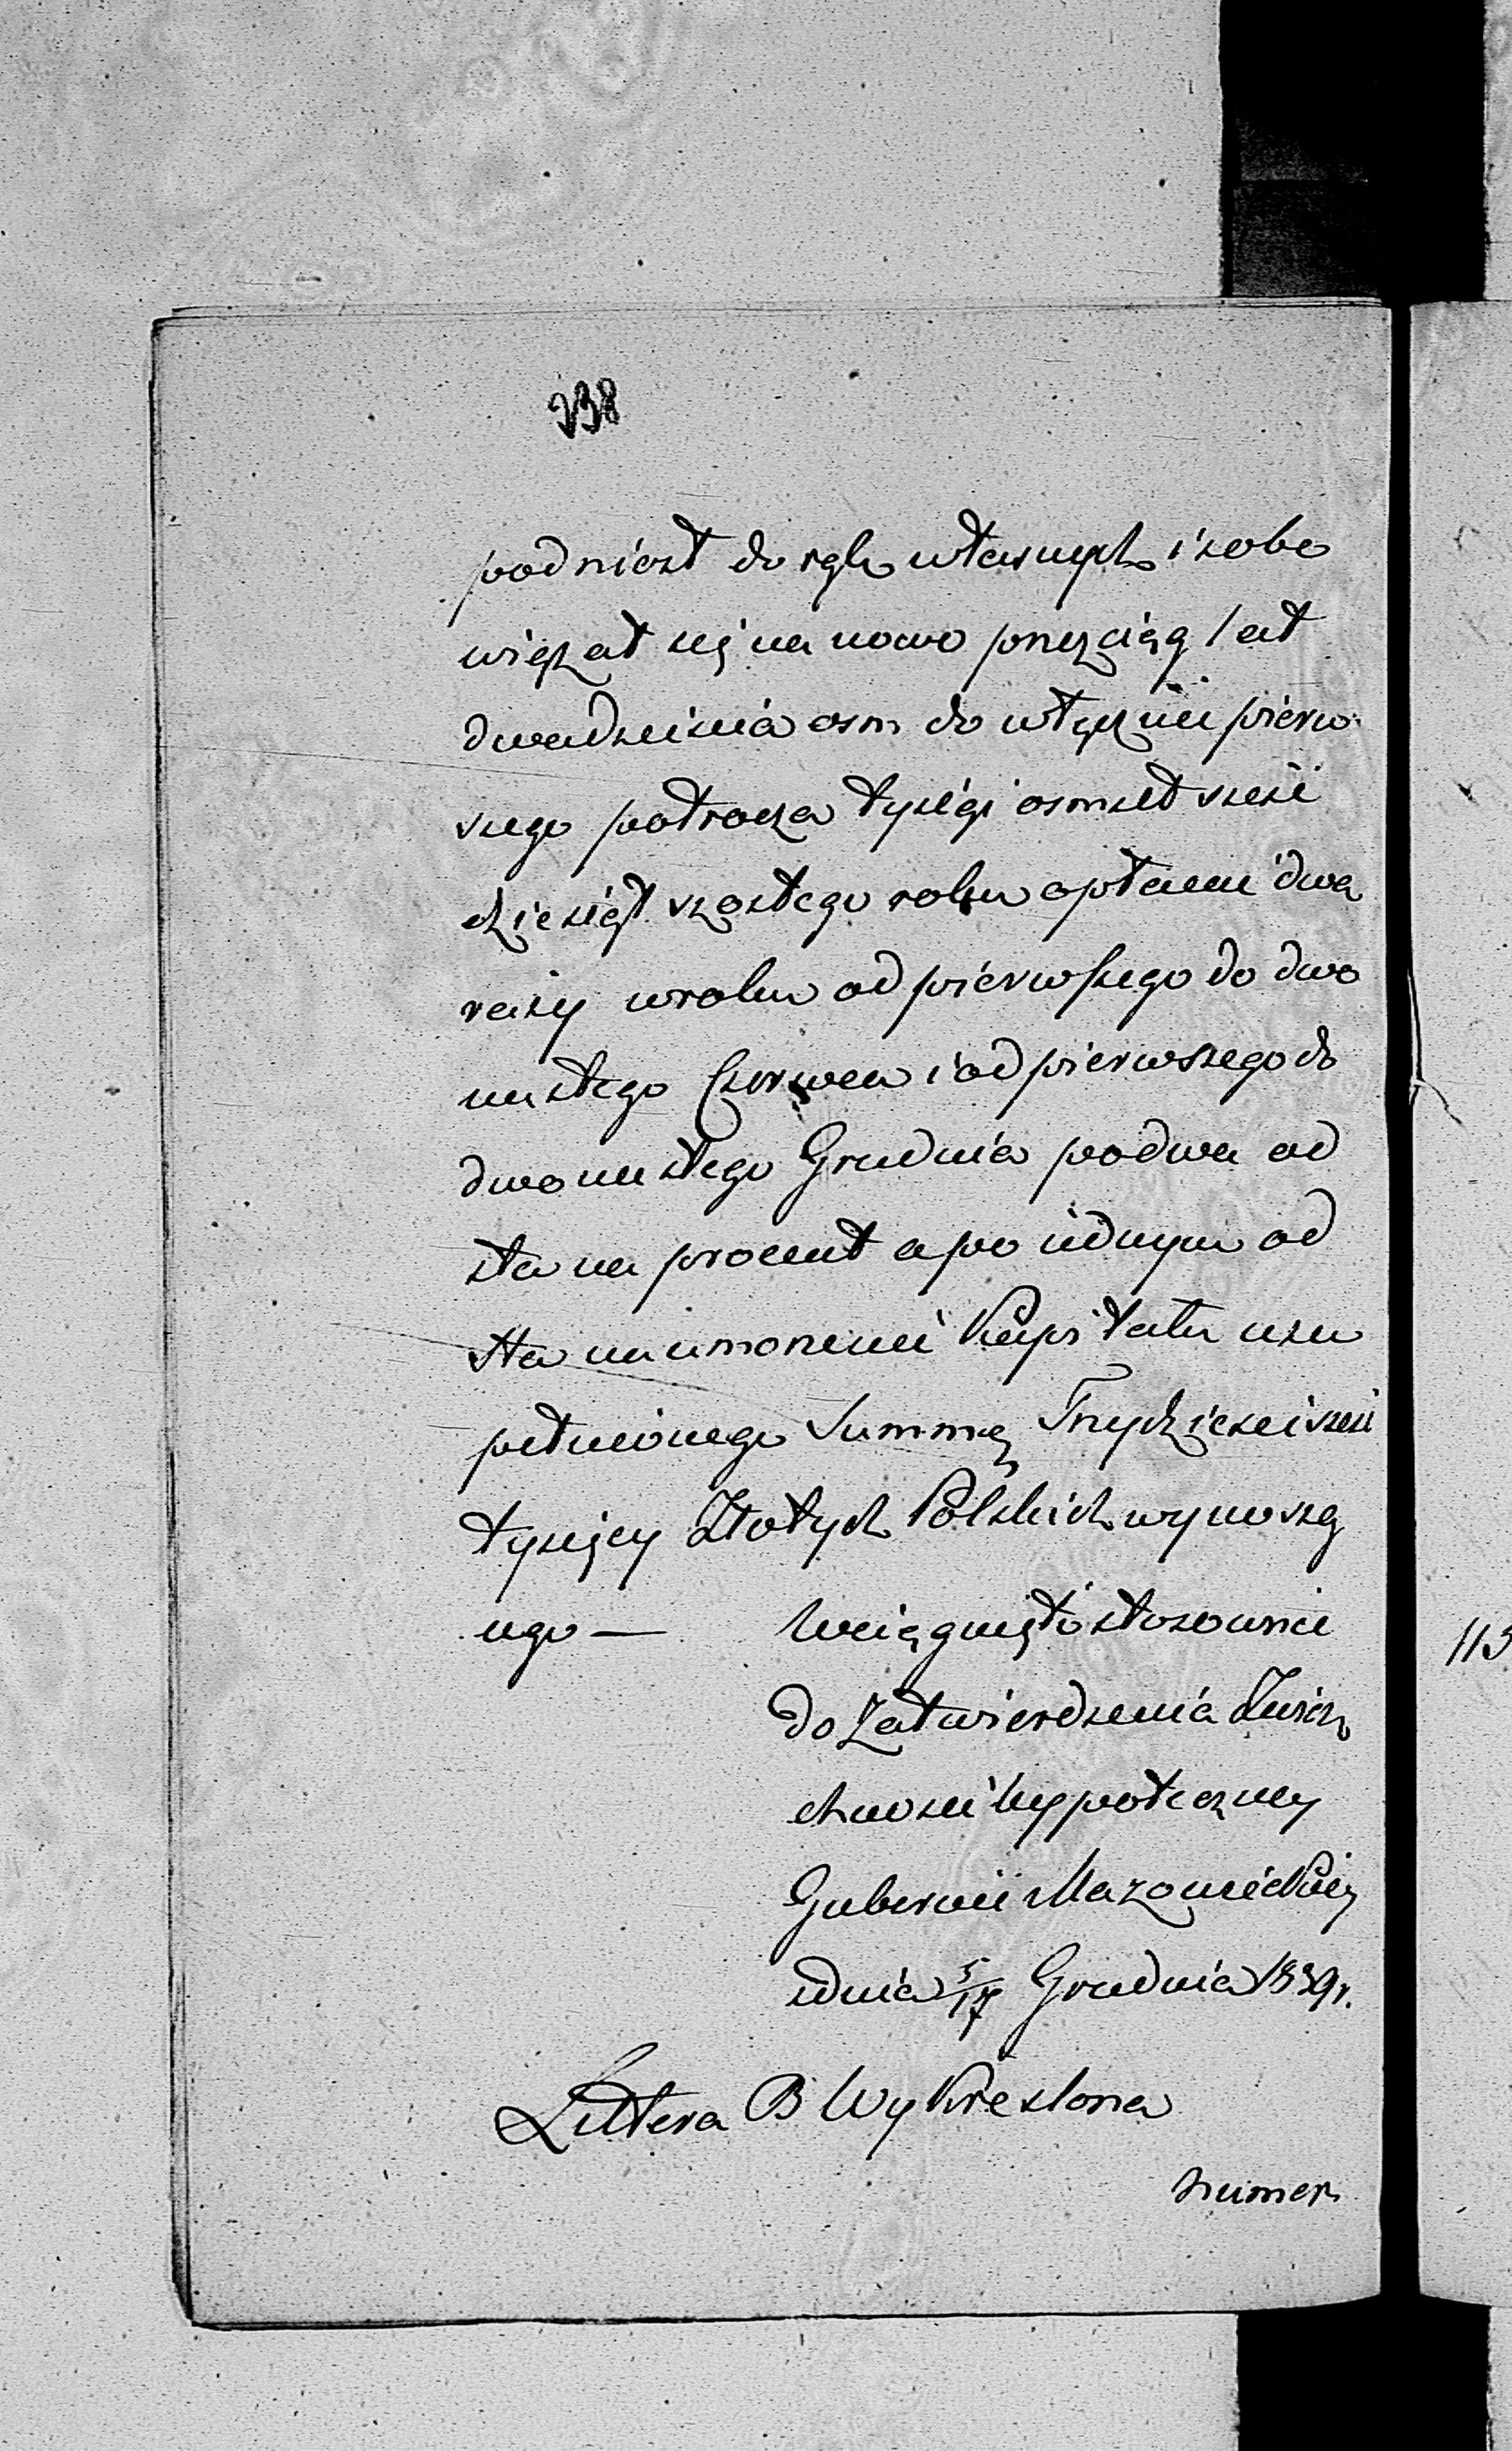 238
podniosł do rąk własnych i zobo
wiązał się na nowo przeciąg lat
dwadzieścia osm do włącznie pierw
szego półrocza tysiąc osmset sześć
dziesiąt szóstego roku opłacać dwa
razy w roku od pierwszego do dwo
nastego Czerwca i od pierwszego do
dwonastego Grudnia po dwa od
sta na procent a po jednym od
sta na umorzenie Kapitału uzu
pełnionego Summę Trzydzieści sześć
tysięcy Złotych Polskich wynoszą
cego — Wciągnięto stosownie
do Zatwierdzenia Zwierz
chności hypoteczney
Gubernii Mazowieckiey
z dnia 5/17 Grudnia 1839 r.
Littera B Wykreslona
numer
113